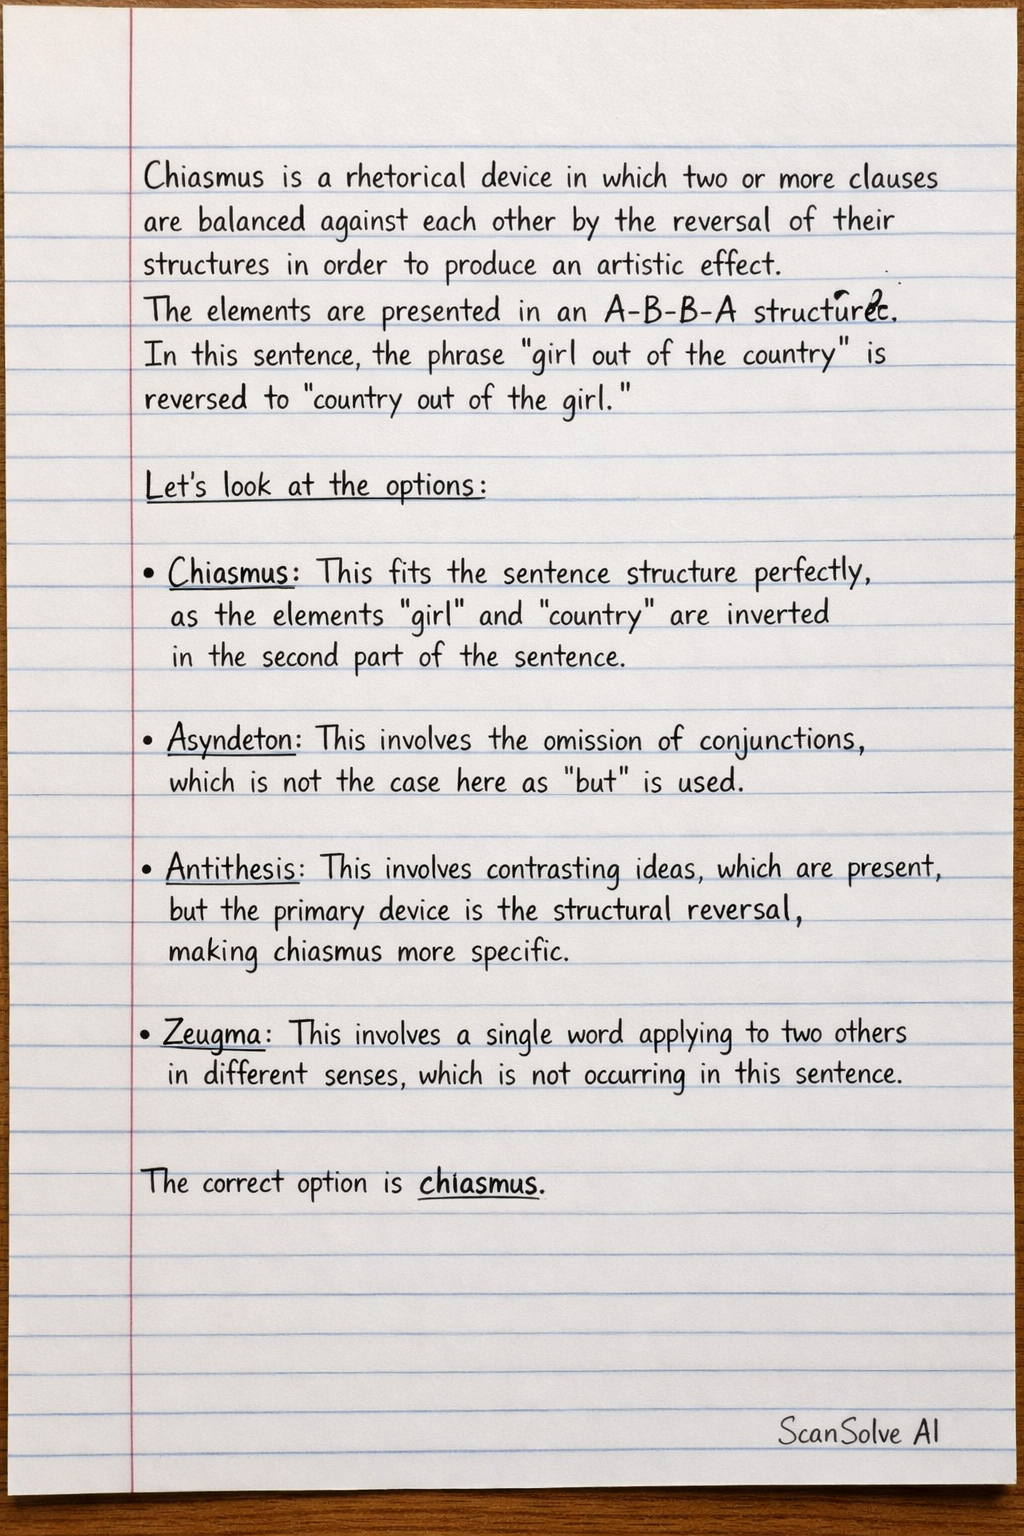 Chiasmus is a rhetorical device in which two or more clauses
are balanced against each other by the reversal of their
structures in order to produce an artistic effect.
The elements are presented in an A-B-B-A structure.
In this sentence, the phrase "girl out of the country" is
reversed to "country out of the girl."
Let's look at the options:
• Chiasmus: This fits the sentence structure perfectly,
as the elements "girl" and "country" are inverted
in the second part of the sentence.
• Asyndeton: This involves the omission of conjunctions,
which is not the case here as "but" is used.
• Antithesis: This involves contrasting ideas, which are present,
but the primary device is the structural reversal,
making chiasmus more specific.
• Zeugma: This involves a single word applying to two others
in different senses, which is not occurring in this sentence.
The correct option is chiasmus.
ScanSolve AI